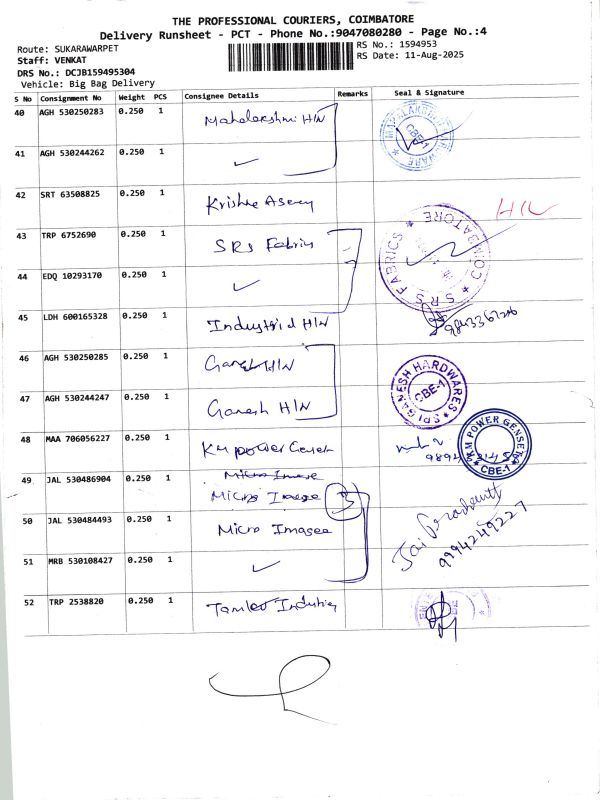 THE PROFESSIONAL COURIERS, COIMBATORE
Delivery Runsheet - PCT - Phone No.:9047080280 - Page No.:4
Route: SUKARAWARPET
RS No.: 1594953
Staff: VENKAT
RS Date: 11-Aug-2025
DRS No.: DCJB159495304
Vehicle: Big Bag Delivery
S No Consignment No Weight PCS Consignee Details Remarks Seal & Signature
40 AGH 530250283 0.250 1 Mahalakshmi H/W
CBE-1
41 AGH 530244262 0.250 1 ✓
42 SRT 63508825 0.250 1 Krishna
43 TRP 6752690 0.250 1 SRS Fabrics
SRS FABRICS * COIMBATORE *
44 EDQ 10293170 0.250 1 ✓
45 LDH 600165328 0.250 1 Industrial H/W
46 AGH 530250285 0.250 1 Ganesh H/W
SRI GANESH HARDWARES
CBE-1
47 AGH 530244247 0.250 1 Ganesh H/W
48 MAA 706056227 0.250 1 KM Power
K.M POWER GENSETS
CBE-1
49 JAL 530486904 0.250 1 Micro Image
Micro Image 3
50 JAL 530484493 0.250 1 Micro Image
9994249227
51 MRB 530108427 0.250 1 ✓
52 TRP 2538820 0.250 1